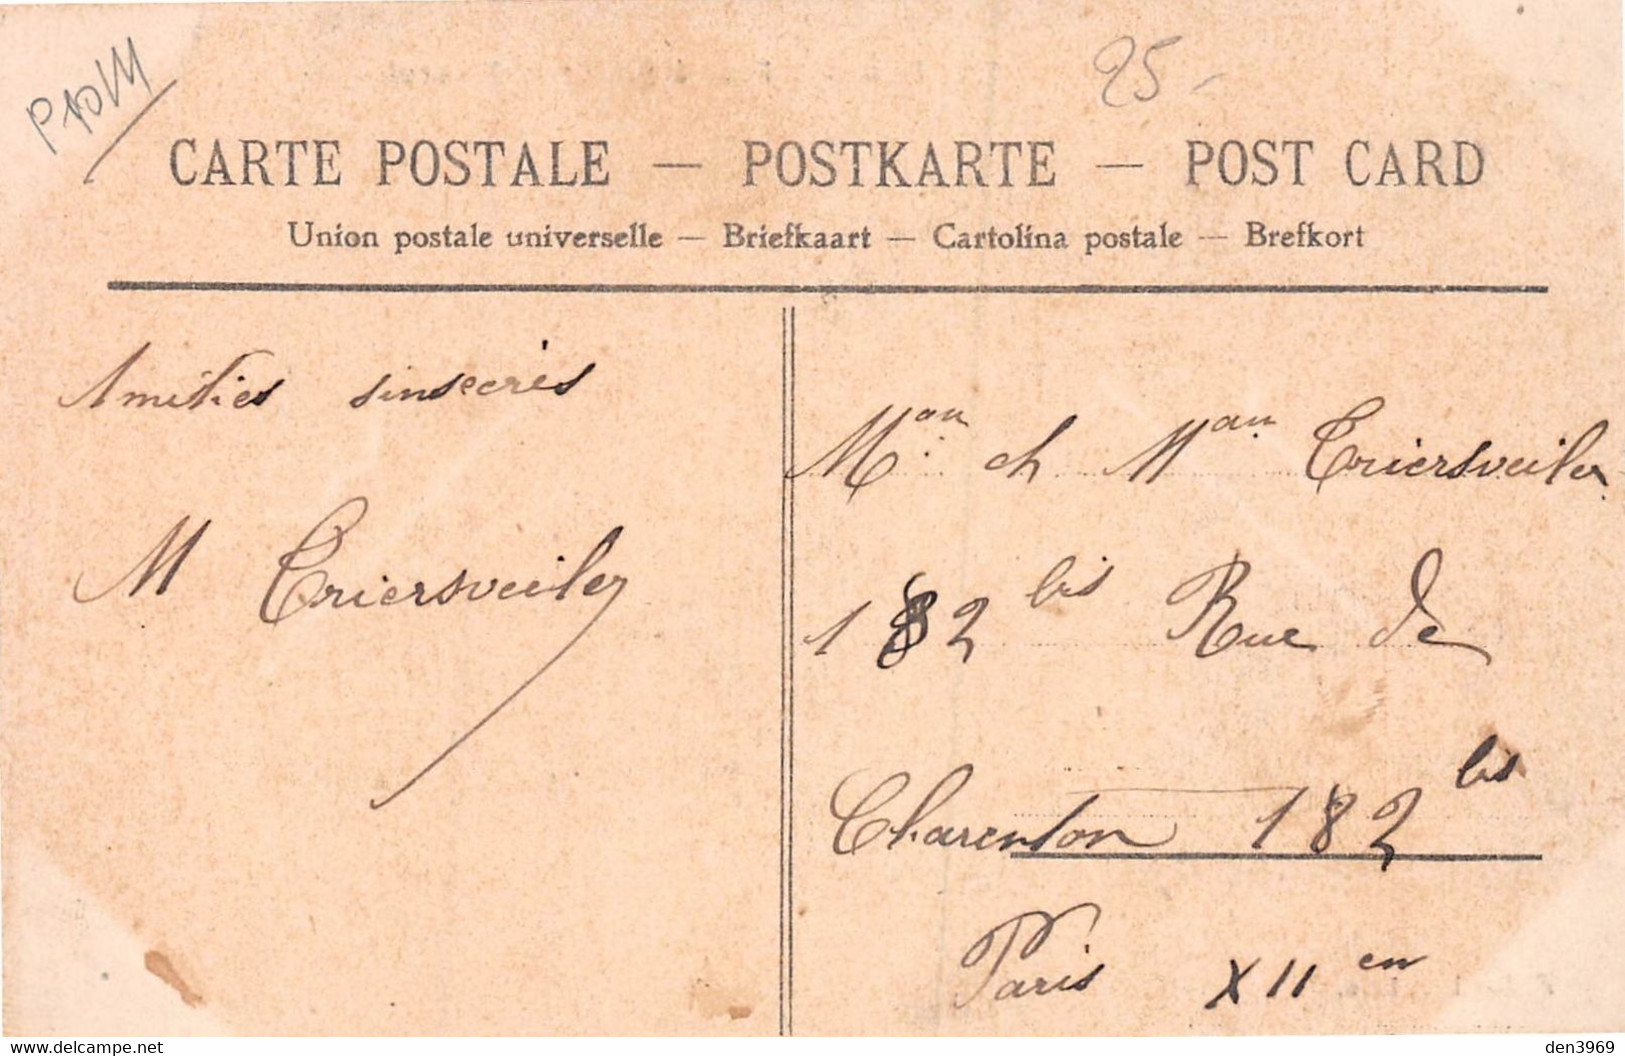 25-
CARTE POSTALE — POSTKARTE — POST CARD
Union postale universelle — Briefkaart — Cartolina postale — Brefkort
Amitiés sinsecrès
M Triersveiler
Triersveiler
182 bis Rue de
Charenton 182 bis
Paris XII en
den3969